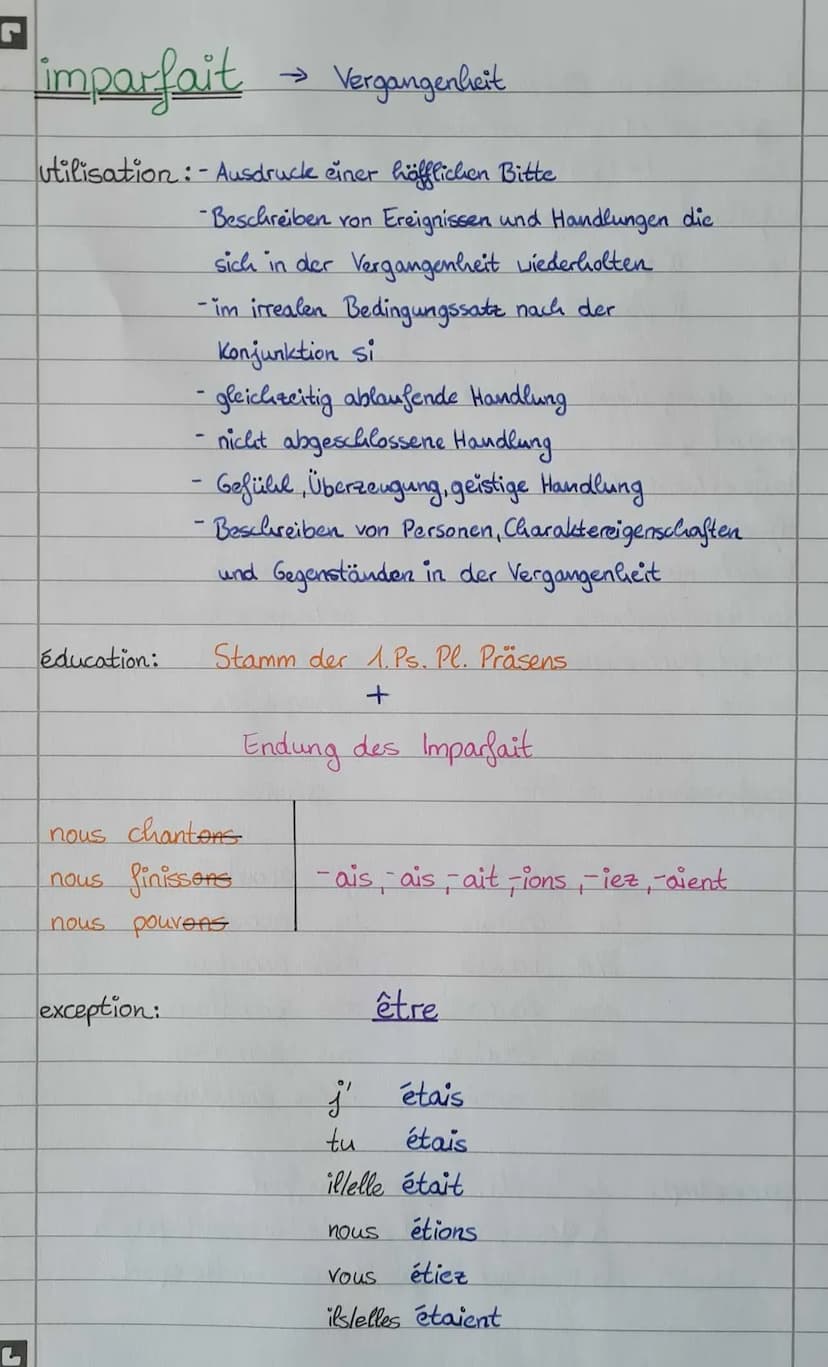 imparfait → Vergangenheit
utilisation: - Ausdruck einer höfflichen Bitte
- Beschreiben von Ereignissen und Handlungen die
sich in der Vergangenheit wiederholten
- im irrealen Bedingungssatz nach der
Konjunktion si
- gleichzeitig ablaufende Handlung
- nicht abgeschlossene Handlung
- Gefühl, Überzeugung, geistige Handlung
- Beschreiben von Personen, Charaktereigenschaften
und Gegenständen in der Vergangenheit
éducation: Stamm der 1. Ps. Pl. Präsens
+
Endung des Imparfait
nous chantons
nous finissons
nous pouvons
-ais, -ais, -ait, -ions, -iez, -aient
exception: être
j' étais
tu étais
il/elle était
nous étions
vous étiez
ils/elles étaient